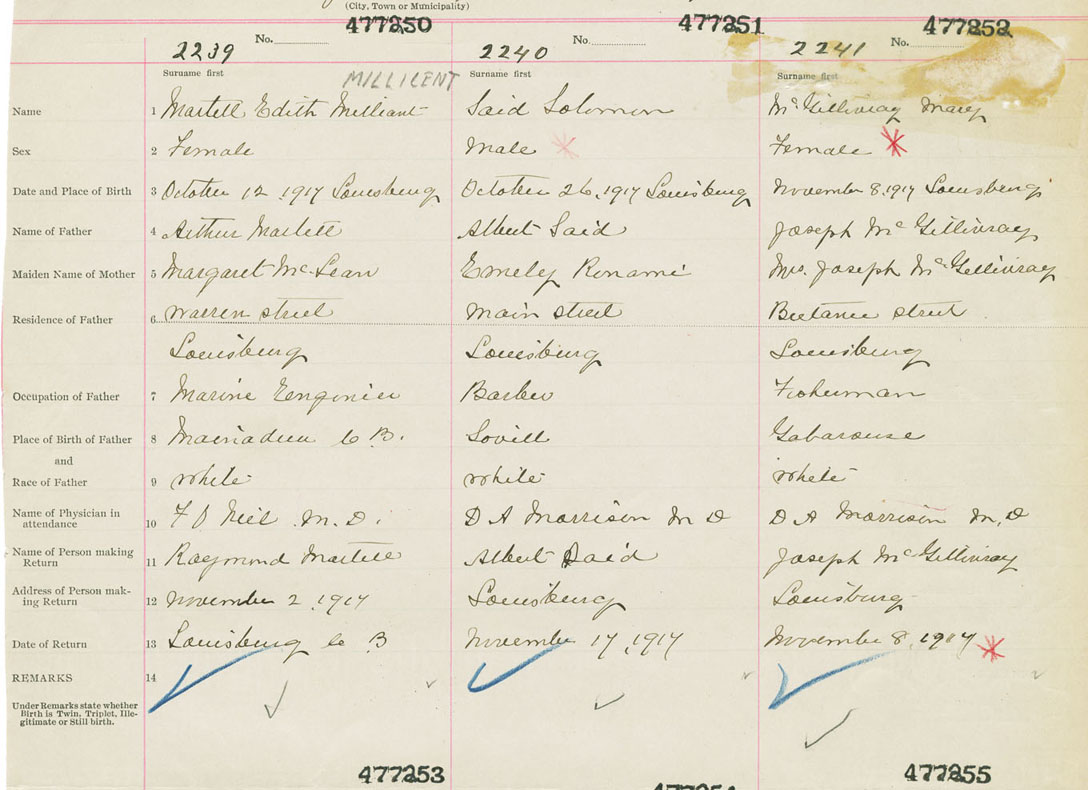 (City, Town or Municipality)
477250 477251 477252
2239 No. 2240 No. 2241 No.
Surname first MILLICENT Surname first Surname first
Name 1 Martell Edith Milliant Said Solomon Mc Gillivray Mary
Sex 2 Female Male Female
Date and Place of Birth 3 October 12, 1917 Louisburg October 26, 1917 Louisburg November 8, 1917 Louisburg
Name of Father 4 Arthur Martell Albert Said Joseph Mc Gillivray
Maiden Name of Mother 5 Margaret McLean Emely Mrs. Joseph Mc Gillivray
Residence of Father 6 Warren street Main street street
Louisburg Louisburg Louisburg
Occupation of Father 7 Marine Enginier Barber Fisherman
Place of Birth of Father 8 Mainadieu C B. Gabarouse
and
Race of Father 9 White White White
Name of Physician in
attendance 10 M.D. D A Morrison M D D A Morrison M, D
Name of Person making
Return 11 Raymond Martell Albert Said Joseph Mc Gillivray
Address of Person mak-
ing Return 12 November 2, 1917 Louisburg Louisburg
Date of Return 13 Louisburg C B November 17, 1917 November 8, 1917
REMARKS 14
Under Remarks state whether
Birth is Twin, Triplet, Ille-
gitimate or Still birth.
477253 477255